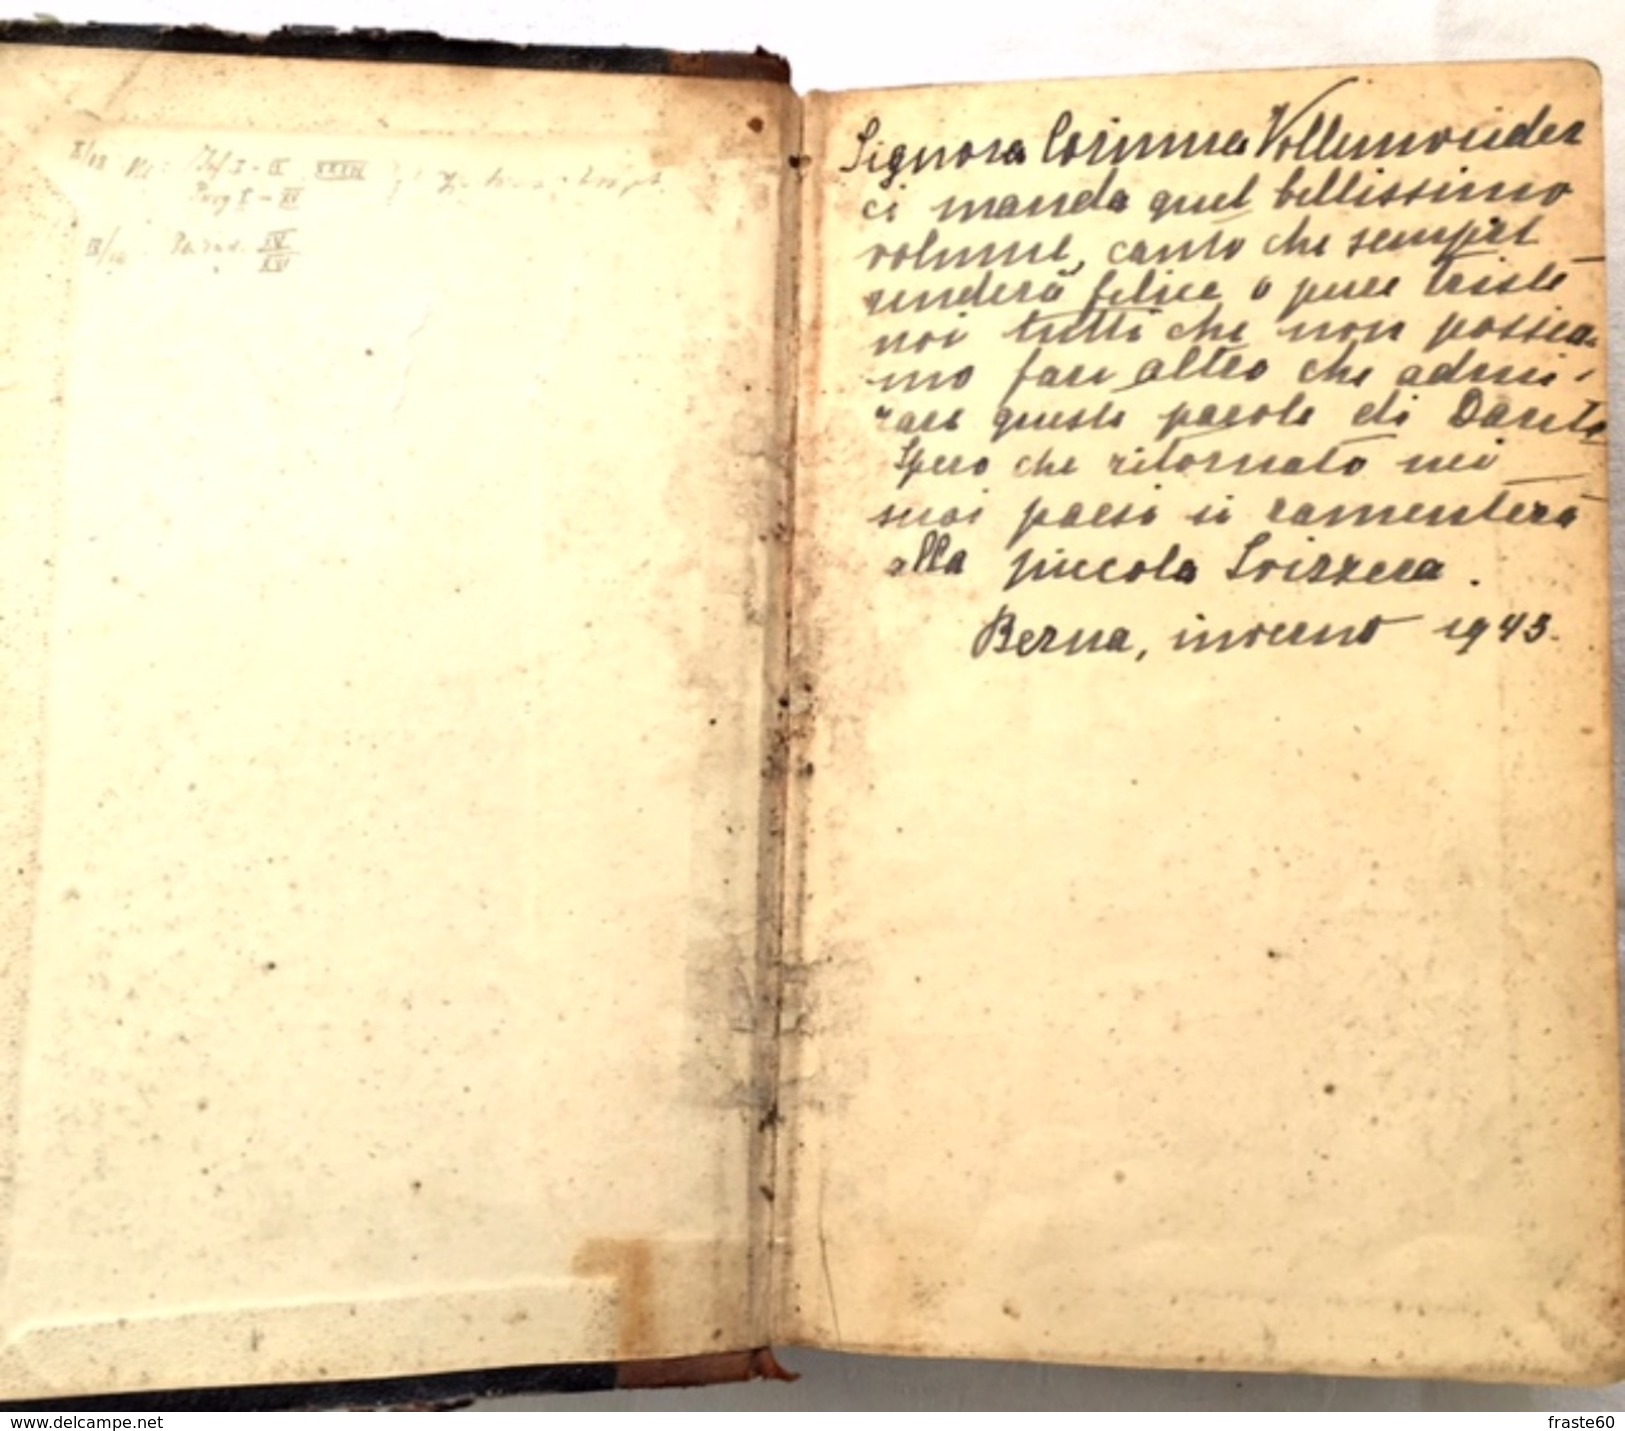 Inf I - IX XXXIII
Purg I - XV
Parad. XV
XVI
Signora Corinna
ci manda quel bellissimo
volume, canto che sempre
renderà felice o pure triste
noi tutti che non possia-
mo fare altro che admi-
rare queste parole di Dante
Spero che ritornato nei
suoi paesi si ramenterà
alla piccola Svizzera.
Berna, inverno 1945.
www.delcampe.net
fraste60